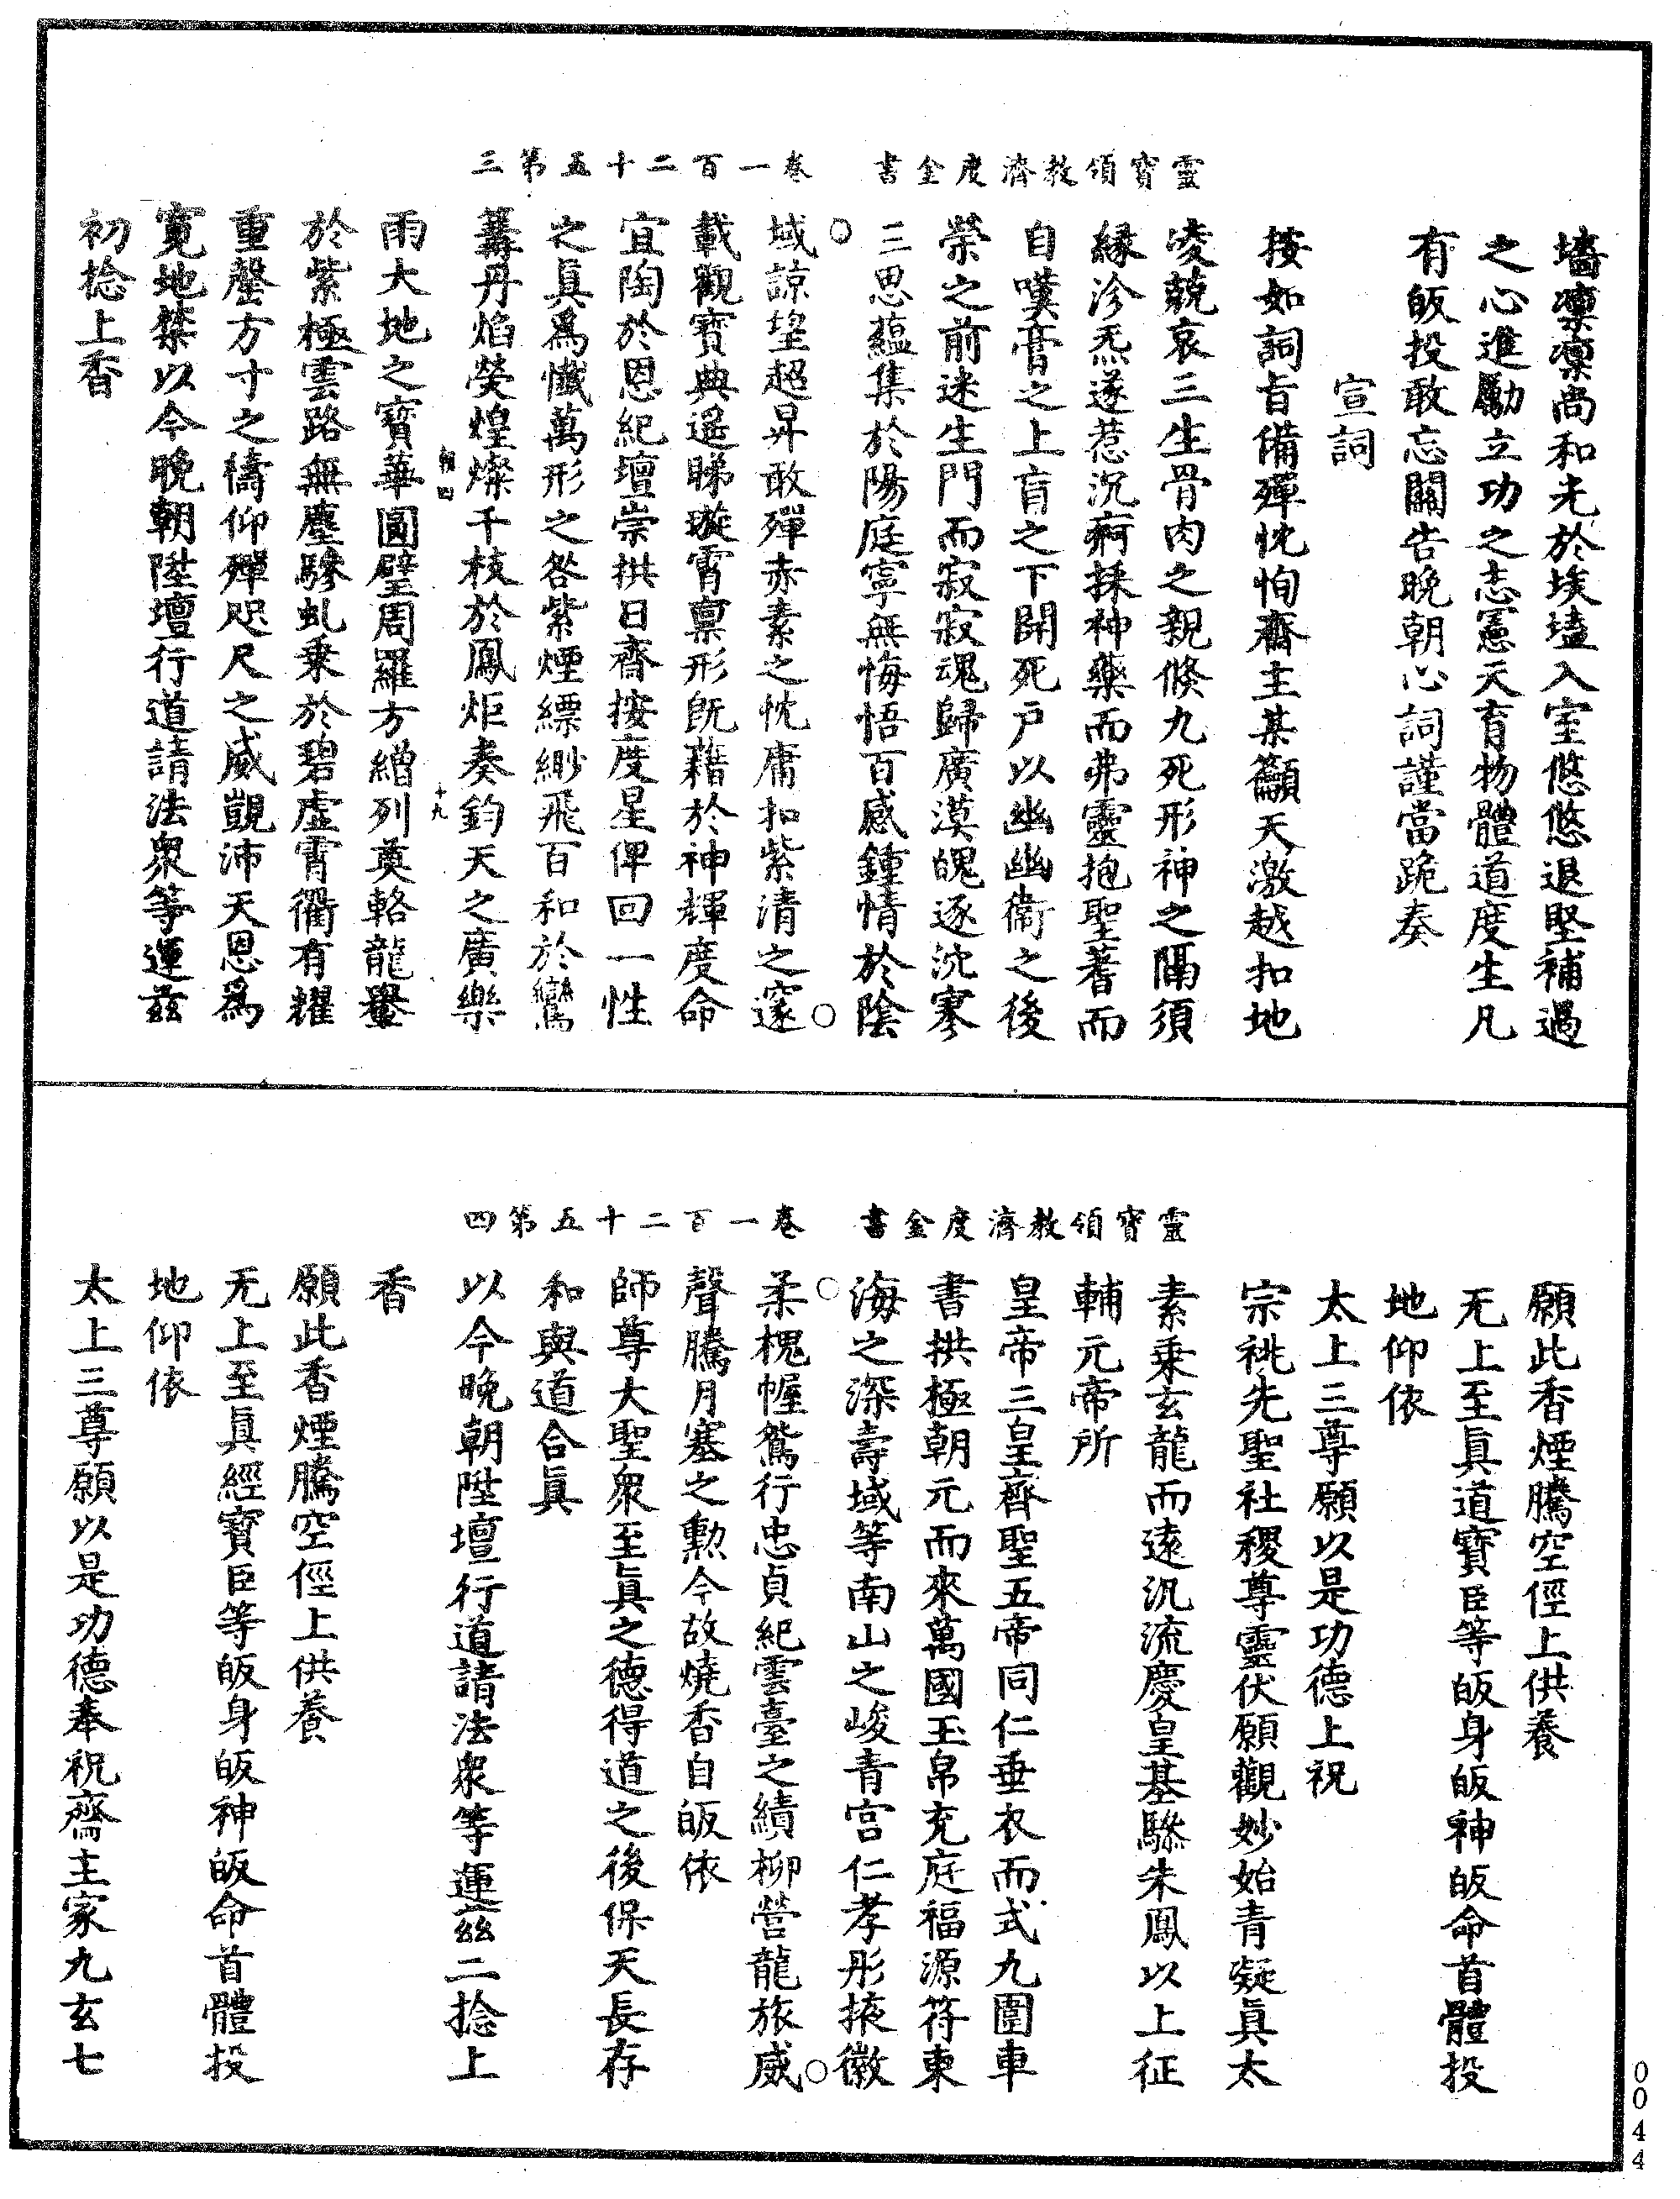 靈寶領教濟度金書　卷一百二十五第三
墻凛凛尚和光於埃𡏖入室悠悠退堅補過
之心進勵立功之志憲天育物體道度生凡
有皈投敢忘關告晚朝心詞謹當跪奏
宣詞
按如詞旨備殫忱恂齋主某籲天激越扣地
凌兢哀三生骨肉之親倏九死形神之隔須
緣沴炁遂惹沉痾採神藥而弗靈抱聖蓍而
自嘆膏之上肓之下開死户以幽幽衞之後
榮之前迷生門而寂寂魂歸廣漠魄逐沈寥
三思蘊集於陽庭寧無悔悟百感鍾情於陰
域諒望超昇敢殫赤素之忱庸扣紫清之邃
載觀寶典遥睇璇霄禀形旣藉於神輝度命
宜陶於恩紀壇崇拱日齋按度星俾回一性
之眞爲懺萬形之咎紫煙縹緲飛百和於鸞
篝丹焰熒煌燦千枝於鳳炬奏鈞天之廣樂
朝四　十九
雨大地之寶華圓璧周羅方繒列奠輅龍轝
於紫極雲路無塵驂虬乗於碧虚霄衢有耀
重罄方寸之禱仰殫咫尺之威覬沛天恩爲
寛地禁以今晚朝陞壇行道請法衆等運兹
初捻上香
靈寶領教濟度金書　卷一百二十五第四
願此香煙騰空徑上供養
无上至眞道寶臣等皈身皈神皈命首體投
地仰依
太上三尊願以是功德上祝
宗祧先聖社稷尊靈伏願觀妙始青凝眞太
素乗玄龍而遠汎流慶皇基驂朱鳳以上征
輔元帝所
皇帝三皇齊聖五帝同仁垂衣而式九圍車
書拱極朝元而來萬國玉帛充庭福源符東
海之深壽域等南山之峻青宫仁孝彤掖徽
柔槐幄鴛行忠貞紀雲臺之績柳營龍旅威
聲騰月塞之勲今故燒香自皈依
師尊大聖衆至眞之德得道之後保天長存
和與道合眞
以今晚朝陞壇行道請法衆等運兹二捻上
香
願此香煙騰空徑上供養
无上至眞經寶臣等皈身皈神皈命首體投
地仰依
太上三尊願以是功德奉祝齋主家九玄七
0044